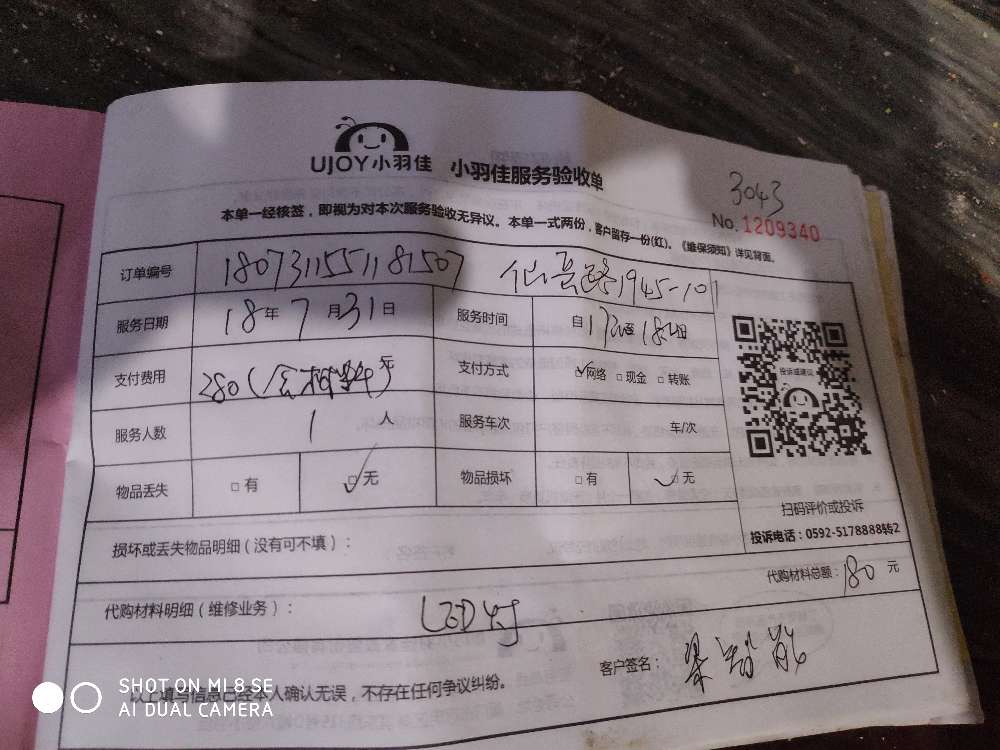 UJOY小羽佳 小羽佳服务验收单
3043
No. 1209340
本单一经核签，即视为对本次服务验收无异议。本单一式两份，客户留存一份(红)。《维保须知》详见背面。
订单编号 1807311551181507 仙岳路1945-101
服务日期 18年7月31日 服务时间 自
支付费用 280(含材料)元 支付方式 网络 □现金 □转账
服务人数 1人 服务车次 车/次
物品丢失 □有 □无 物品损坏 □有 □无
投诉或建议
扫码评价或投诉
投诉电话：0592-5178888转2
损坏或丢失物品明细（没有可不填）：
代购材料总额：180元
代购材料明细（维修业务）： LED灯
客户签名：
以上填写信息已经本人确认无误，不存在任何争议纠纷。
SHOT ON MI 8 SE
AI DUAL CAMERA